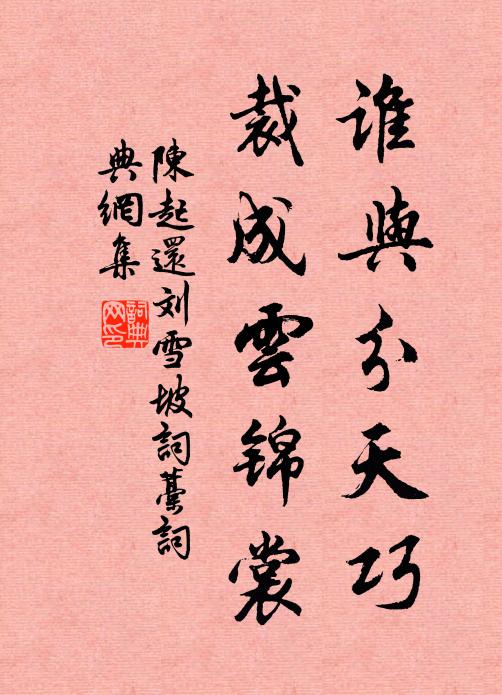 谁與分天巧
裁成雲锦裳
陳起還刘雪坡詞藁詞
典網集
詞典网印